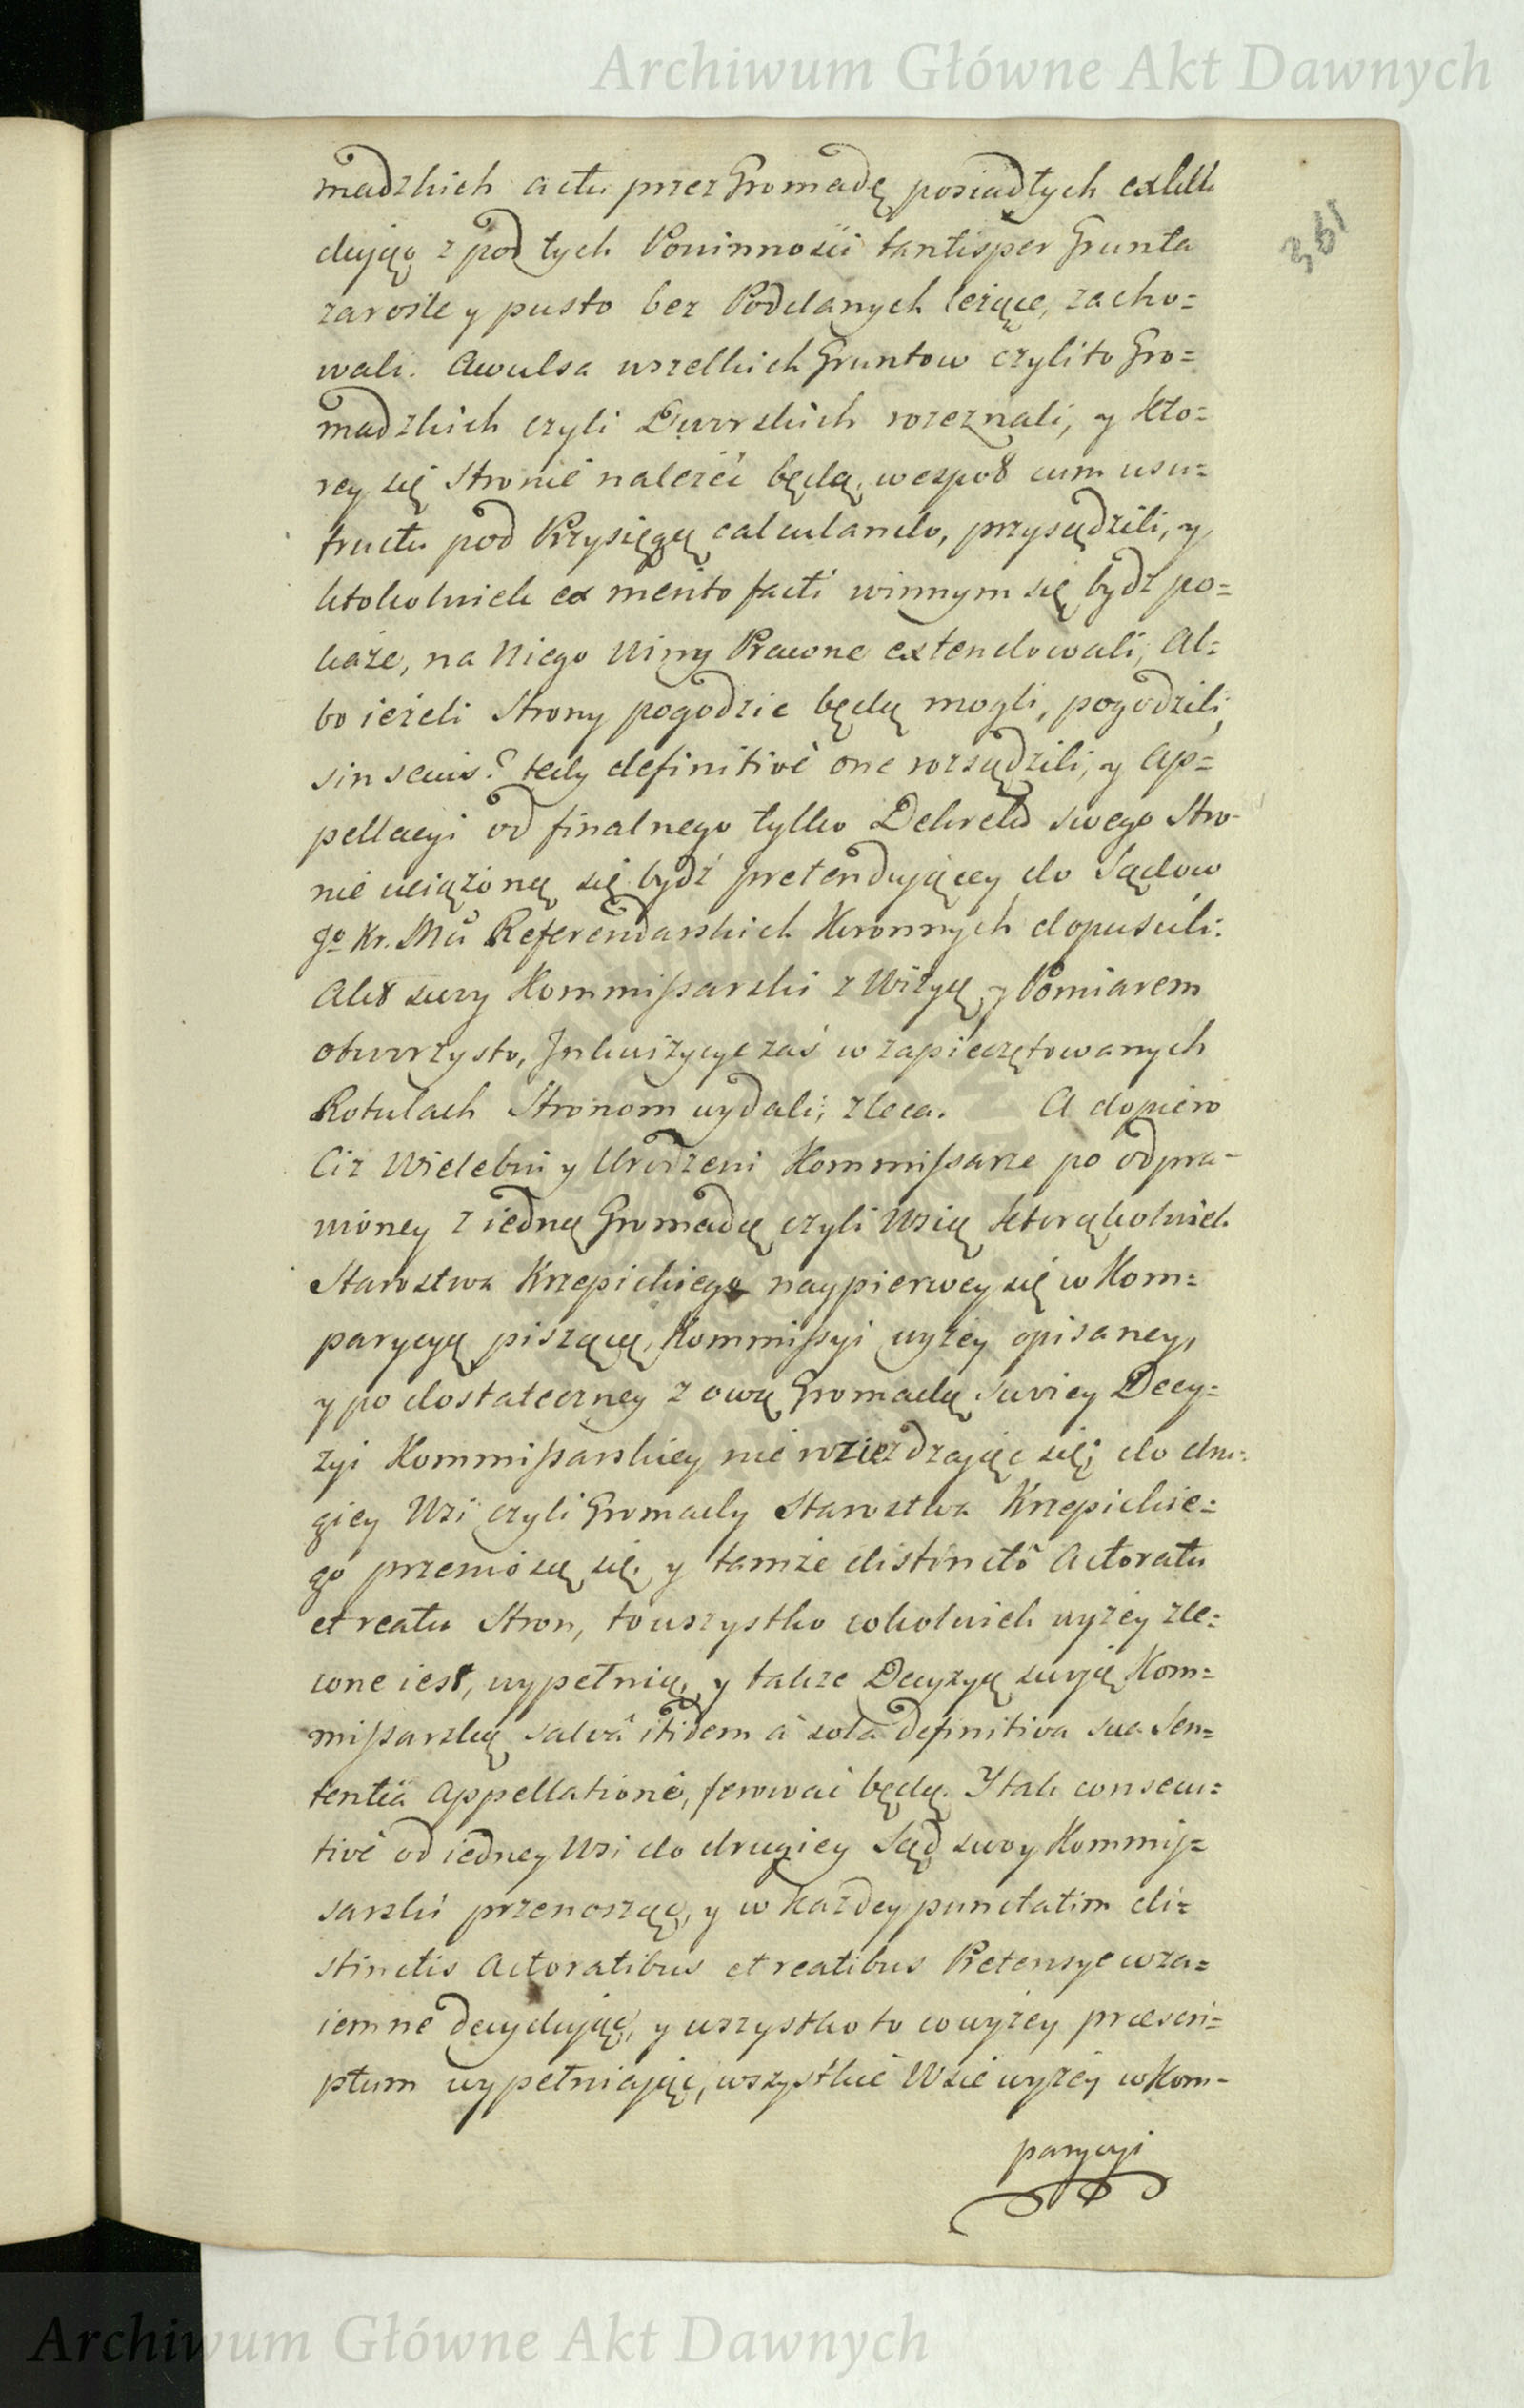 Archiwum Główne Akt Dawnych
361
madzkich actu przez Gromadę posiadłych exklu
dując z pod tych Powinności tantisper Grunta
zarosłe y pusto bez Poddanych leżące, zacho=
wali. Awulsa wszelkich Gruntow czyli to Gro=
madzkich czyli Dworskich rozeznali, y kto=
rey się Stronie należeć będą, wespoł cum usu=
fructu pod Przysięgą calculando, przysądzili, y
ktokolwiek ex merito facti winnym się bydź po=
każe, na Niego Winy Prawne extendowali, Al=
bo ieżeli Strony pogodzić będą mogli, pogodzili,
sin secus? tedy definitivè one rozsądzili, y Ap=
pellacyi od finalnego tylko Dekretu swego Stro-
nie uciążoną się bydź pretendującey do Sądow
Jo Kr. Mci Referendarskich Koronnych dopuścili:
Akt swoy Kommissarski z Wizyą y Pomiarem
otworzysto, Inkwizycye zaś w zapieczętowanych
Rotulach Stronom wydali, zleca. A dopiero
Ciż Wielebni y Urodzeni Kommissarze po odpra-
wioney z iedną Gromadą czyli Wsią ktorąkolwiek
Starostwa Krzepickiego naypierwey się w Kom=
parycyą piszącą, Kommissyi wyżey opisaney,
y po dostateczney z ową Gromadą swoiey Decy=
zyi Kommissarskiey nie rozieżdzając się, do dru=
giey Wsi czyli Gromady Starostwa Krzepickie=
go przeniosą się, y tamże distinctô Actoratu
et reatu Stron, to wszystko cokolwiek wyżey zle=
cone iest, wypełnią, y także Decyzyą swoją Kom=
missarską salvâ itidem à sola definitiva sua Sen=
tentiâ Appellationè, ferować będą. Y tak consecu=
tivè od iedney Wsi do drugiey Sąd swoy Kommis=
sarski przenosząc, y w każdey punctatim di=
stinctis Actoratibus et reatibus Pretensye wza=
iemne decydując, y wszystko to co wyżey præscri=
ptum wypełniając, wszystkie Wsie wyżey w Kom-
parycyi
Archiwum Główne Akt Dawnych